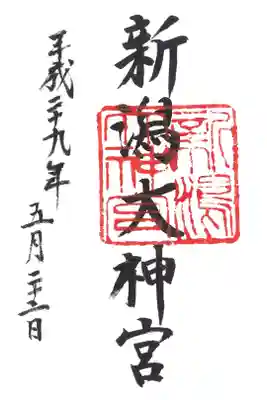 新潟大神宮
平成二十九年
五月二十二日
新潟
大神宮